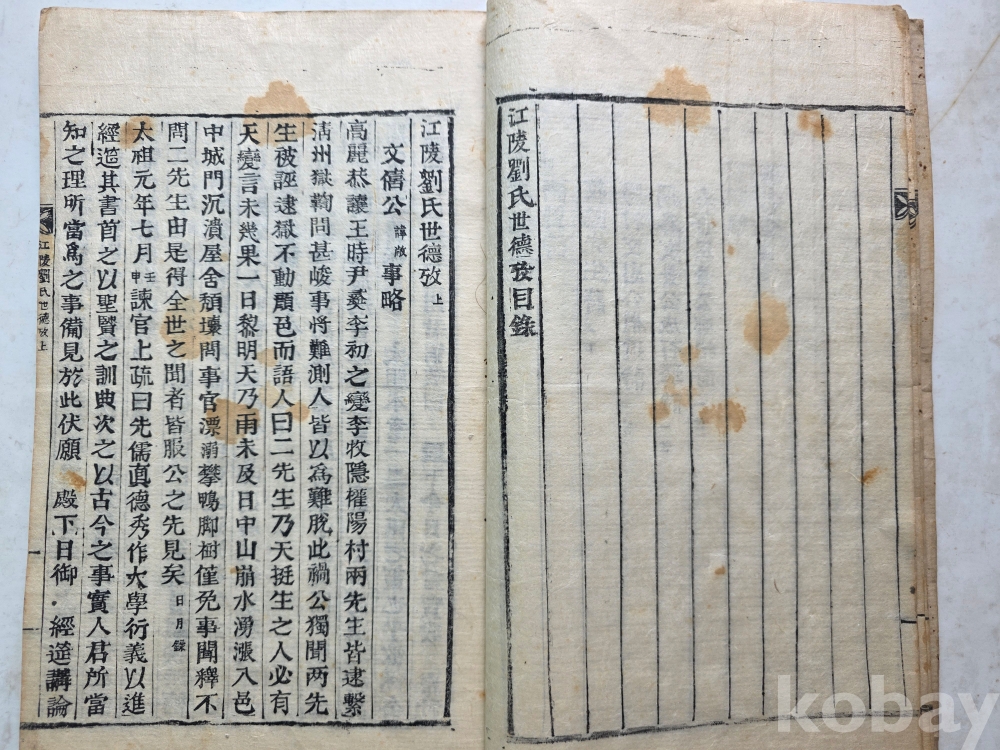 江陵劉氏世德攷目錄
江陵劉氏世德攷 上
文僖公 諱敞 事略
高麗恭讓王時尹彛李初之變李牧隱權陽村兩先生皆逮繫
淸州獄鞫問甚峻事將難測人皆以爲難脫此禍公獨聞兩先
生被誣逮獄不動顏色而語人曰二先生乃天挺生之人必有
天變言未幾果一日黎明天乃雨未及日中山崩水湧漲入邑
中城門沉潰屋舍頹壞問事官漂溺攀鴨脚樹僅免事聞釋不
問二先生由是得全世之聞者皆服公之先見矣 日月錄
太祖元年七月 壬申 諫官上疏曰先儒眞德秀作大學衍義以進
經筵其書首之以聖賢之訓典次之以古今之事實人君所當
知之理所當爲之事備見於此伏願 殿下日御 經筵講論
江陵劉氏世德攷上
kobay